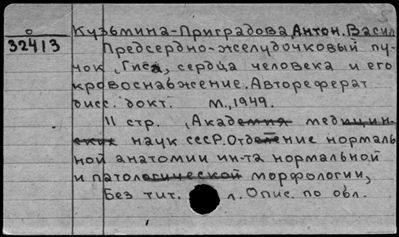 о
32413
Кузьмина-Приградова, Антон. Васил
Предсердно-желудочковый пу-
чок, Гиса, сердца человека и его
кровоснабжение. Автореферат
дисс. докт. М., 1949.
11 стр. (Академия медицин-
ских наук СССР. Отделение нормаль-
ной анатомии ин-та нормальной
и патологической морфологии,
Без тит. л. Опис. по обл.